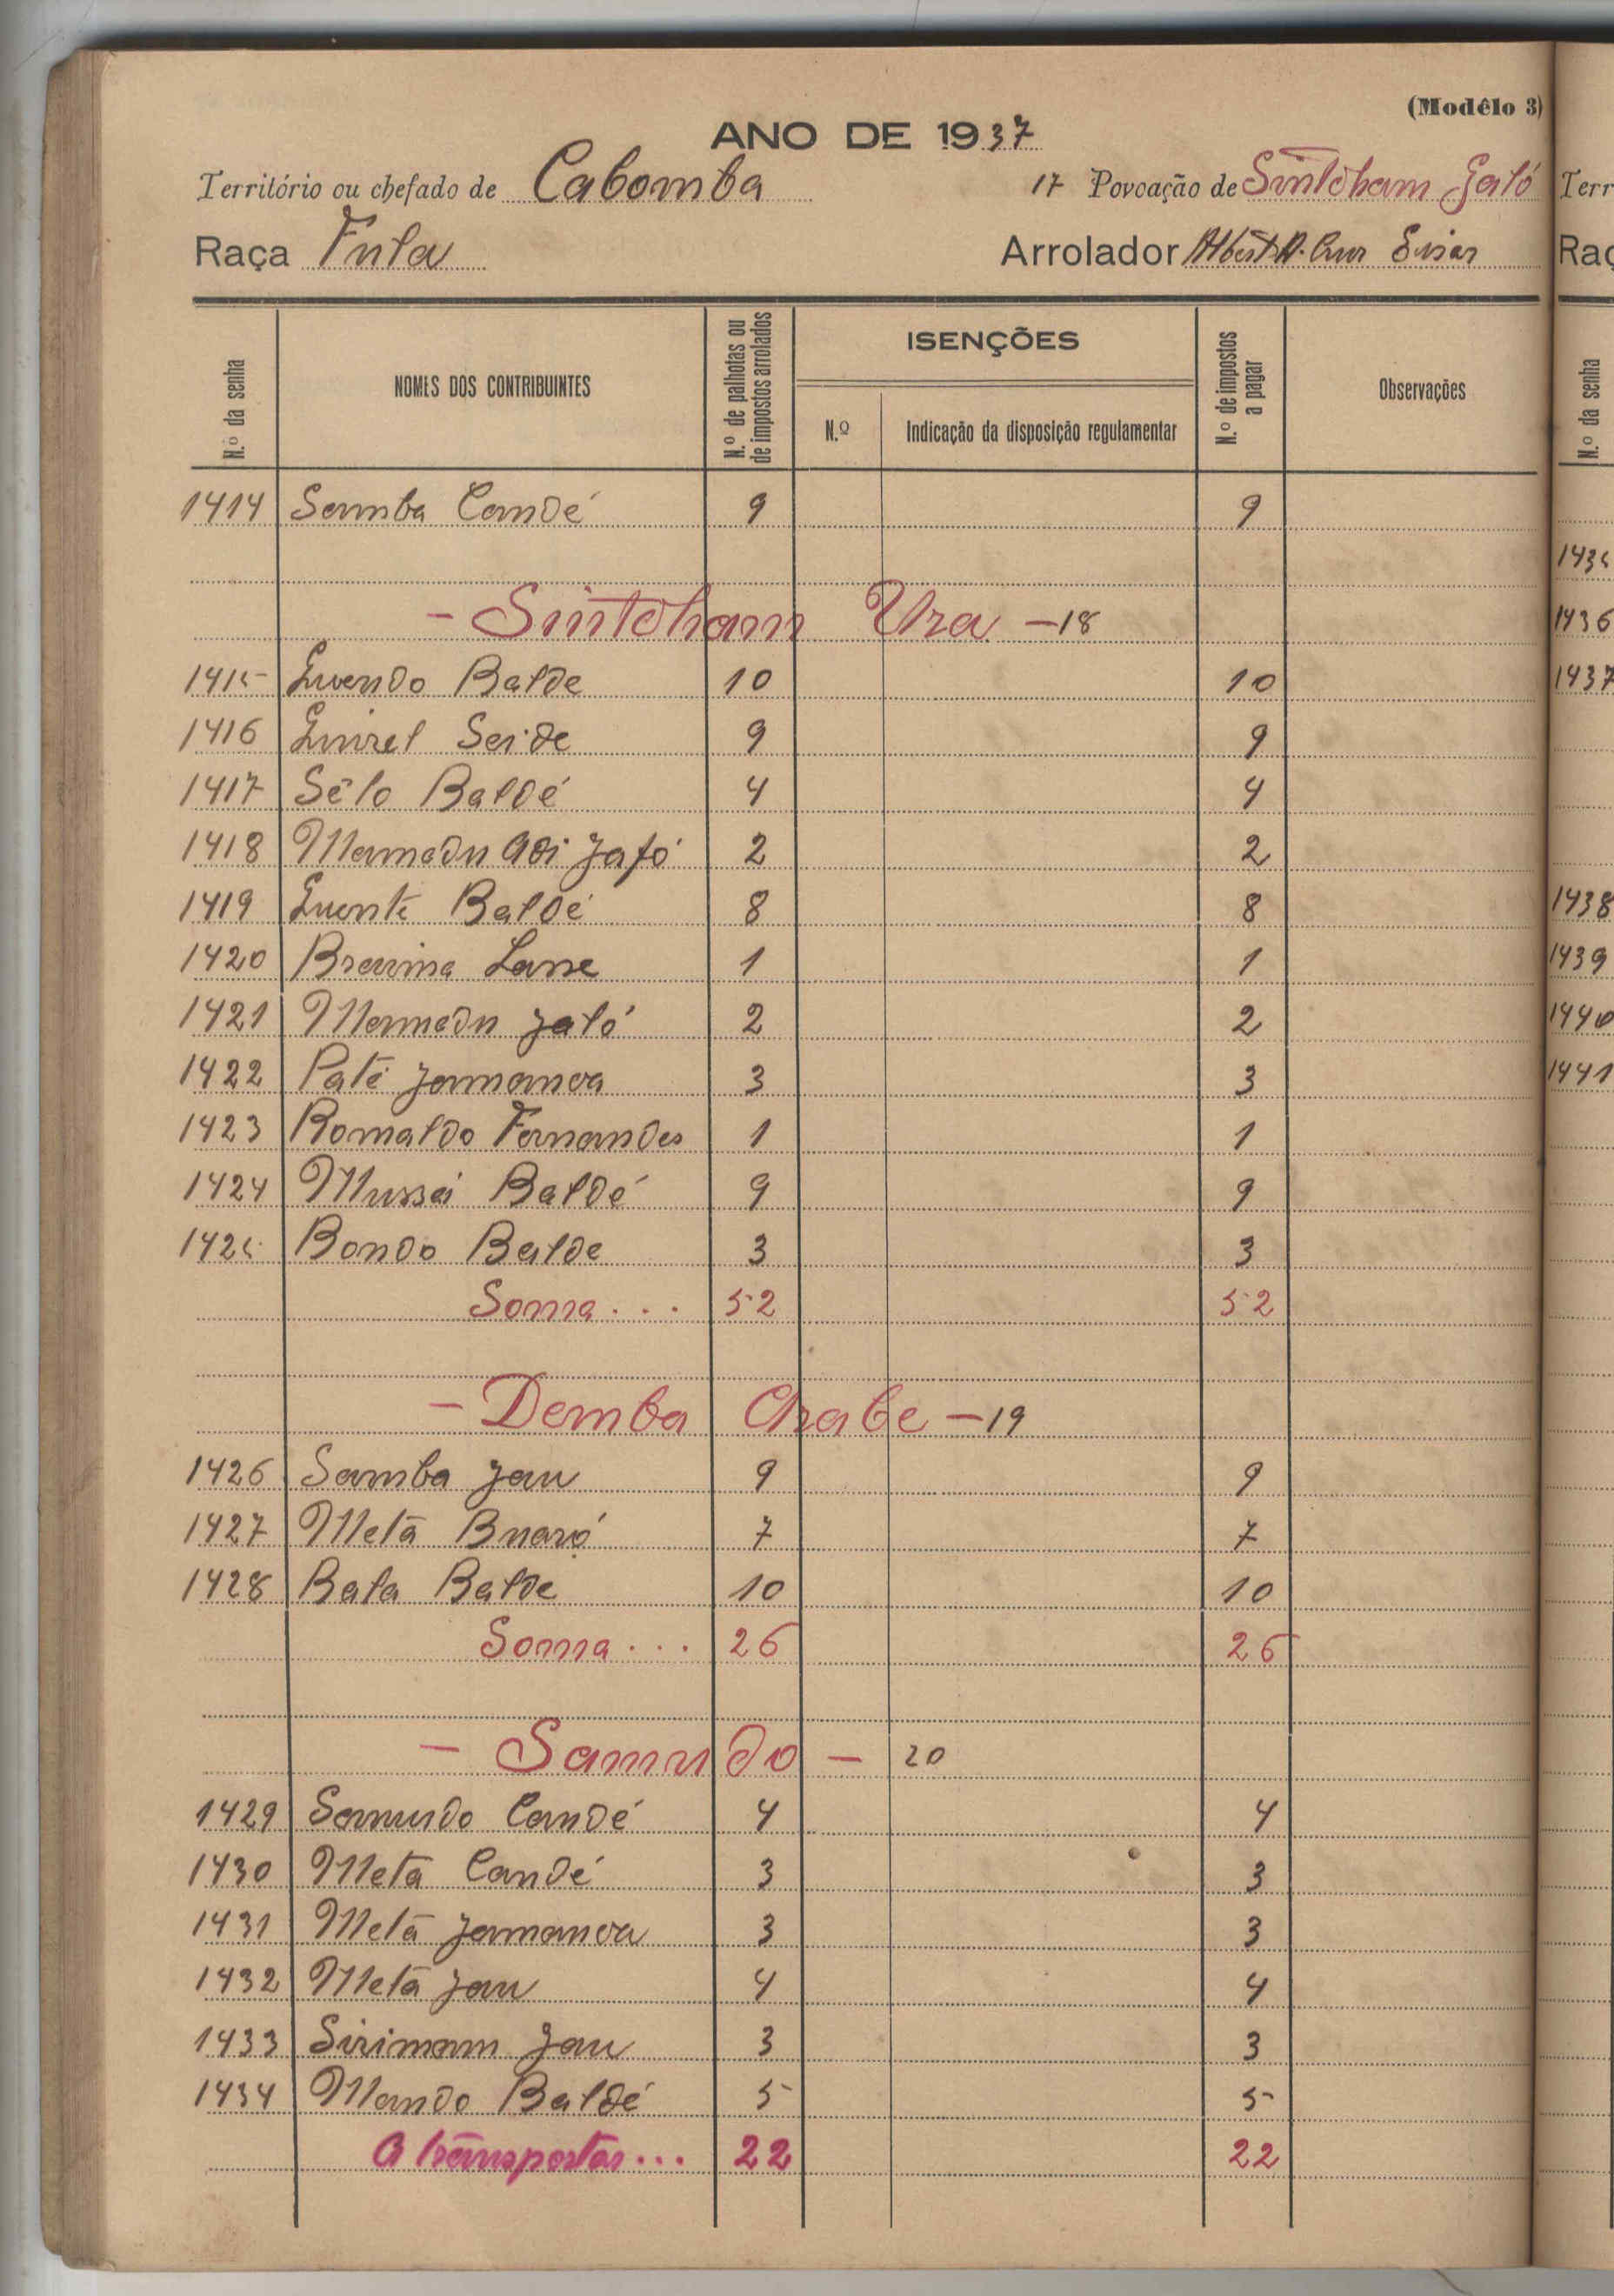 (Modêlo 3)
ANO DE 1937
Território ou chefado de Cabomba 17 Povoação de Sintcham Jaló
Raça Fula Arrolador Albert A. Cruz
N.º da senha NOMES DOS CONTRIBUINTES N.º de palhotas ou de impostos arrolados ISENÇÕES N.º Indicação da disposição regulamentar N.º de impostos a pagar Observações
1414 Samba Candé 9 9
- Sintcham Ura - 18
1415 Guendo Balde 10 10
1416 Seide 9 9
1417 Sêlo Baldé 4 4
1418 Mamadu Adi Jaló 2 2
1419 Baldé 8 8
1420 Braima Lane 1 1
1421 Mamadu Jaló 2 2
1422 Paté Jamanca 3 3
1423 Romaldo Fernandes 1 1
1424 Mussá Baldé 9 9
1425 Bondo Balde 3 3
Soma... 52 52
- Demba Arabe - 19
1426 Samba Jau 9 9
1427 Metá Buaró 7 7
1428 Bala Balde 10 10
Soma... 26 26
- Samudo - 20
1429 Samudo Candé 4 4
1430 Metá Candé 3 3
1431 Metá Jamanca 3 3
1432 Metá Jau 4 4
1433 Sirimam Jau 3 3
1434 Mando Baldé 5 5
A transportar... 22 22
Terr
Raç
N.º da senha
1435
1436
1437
1438
1439
1440
1441